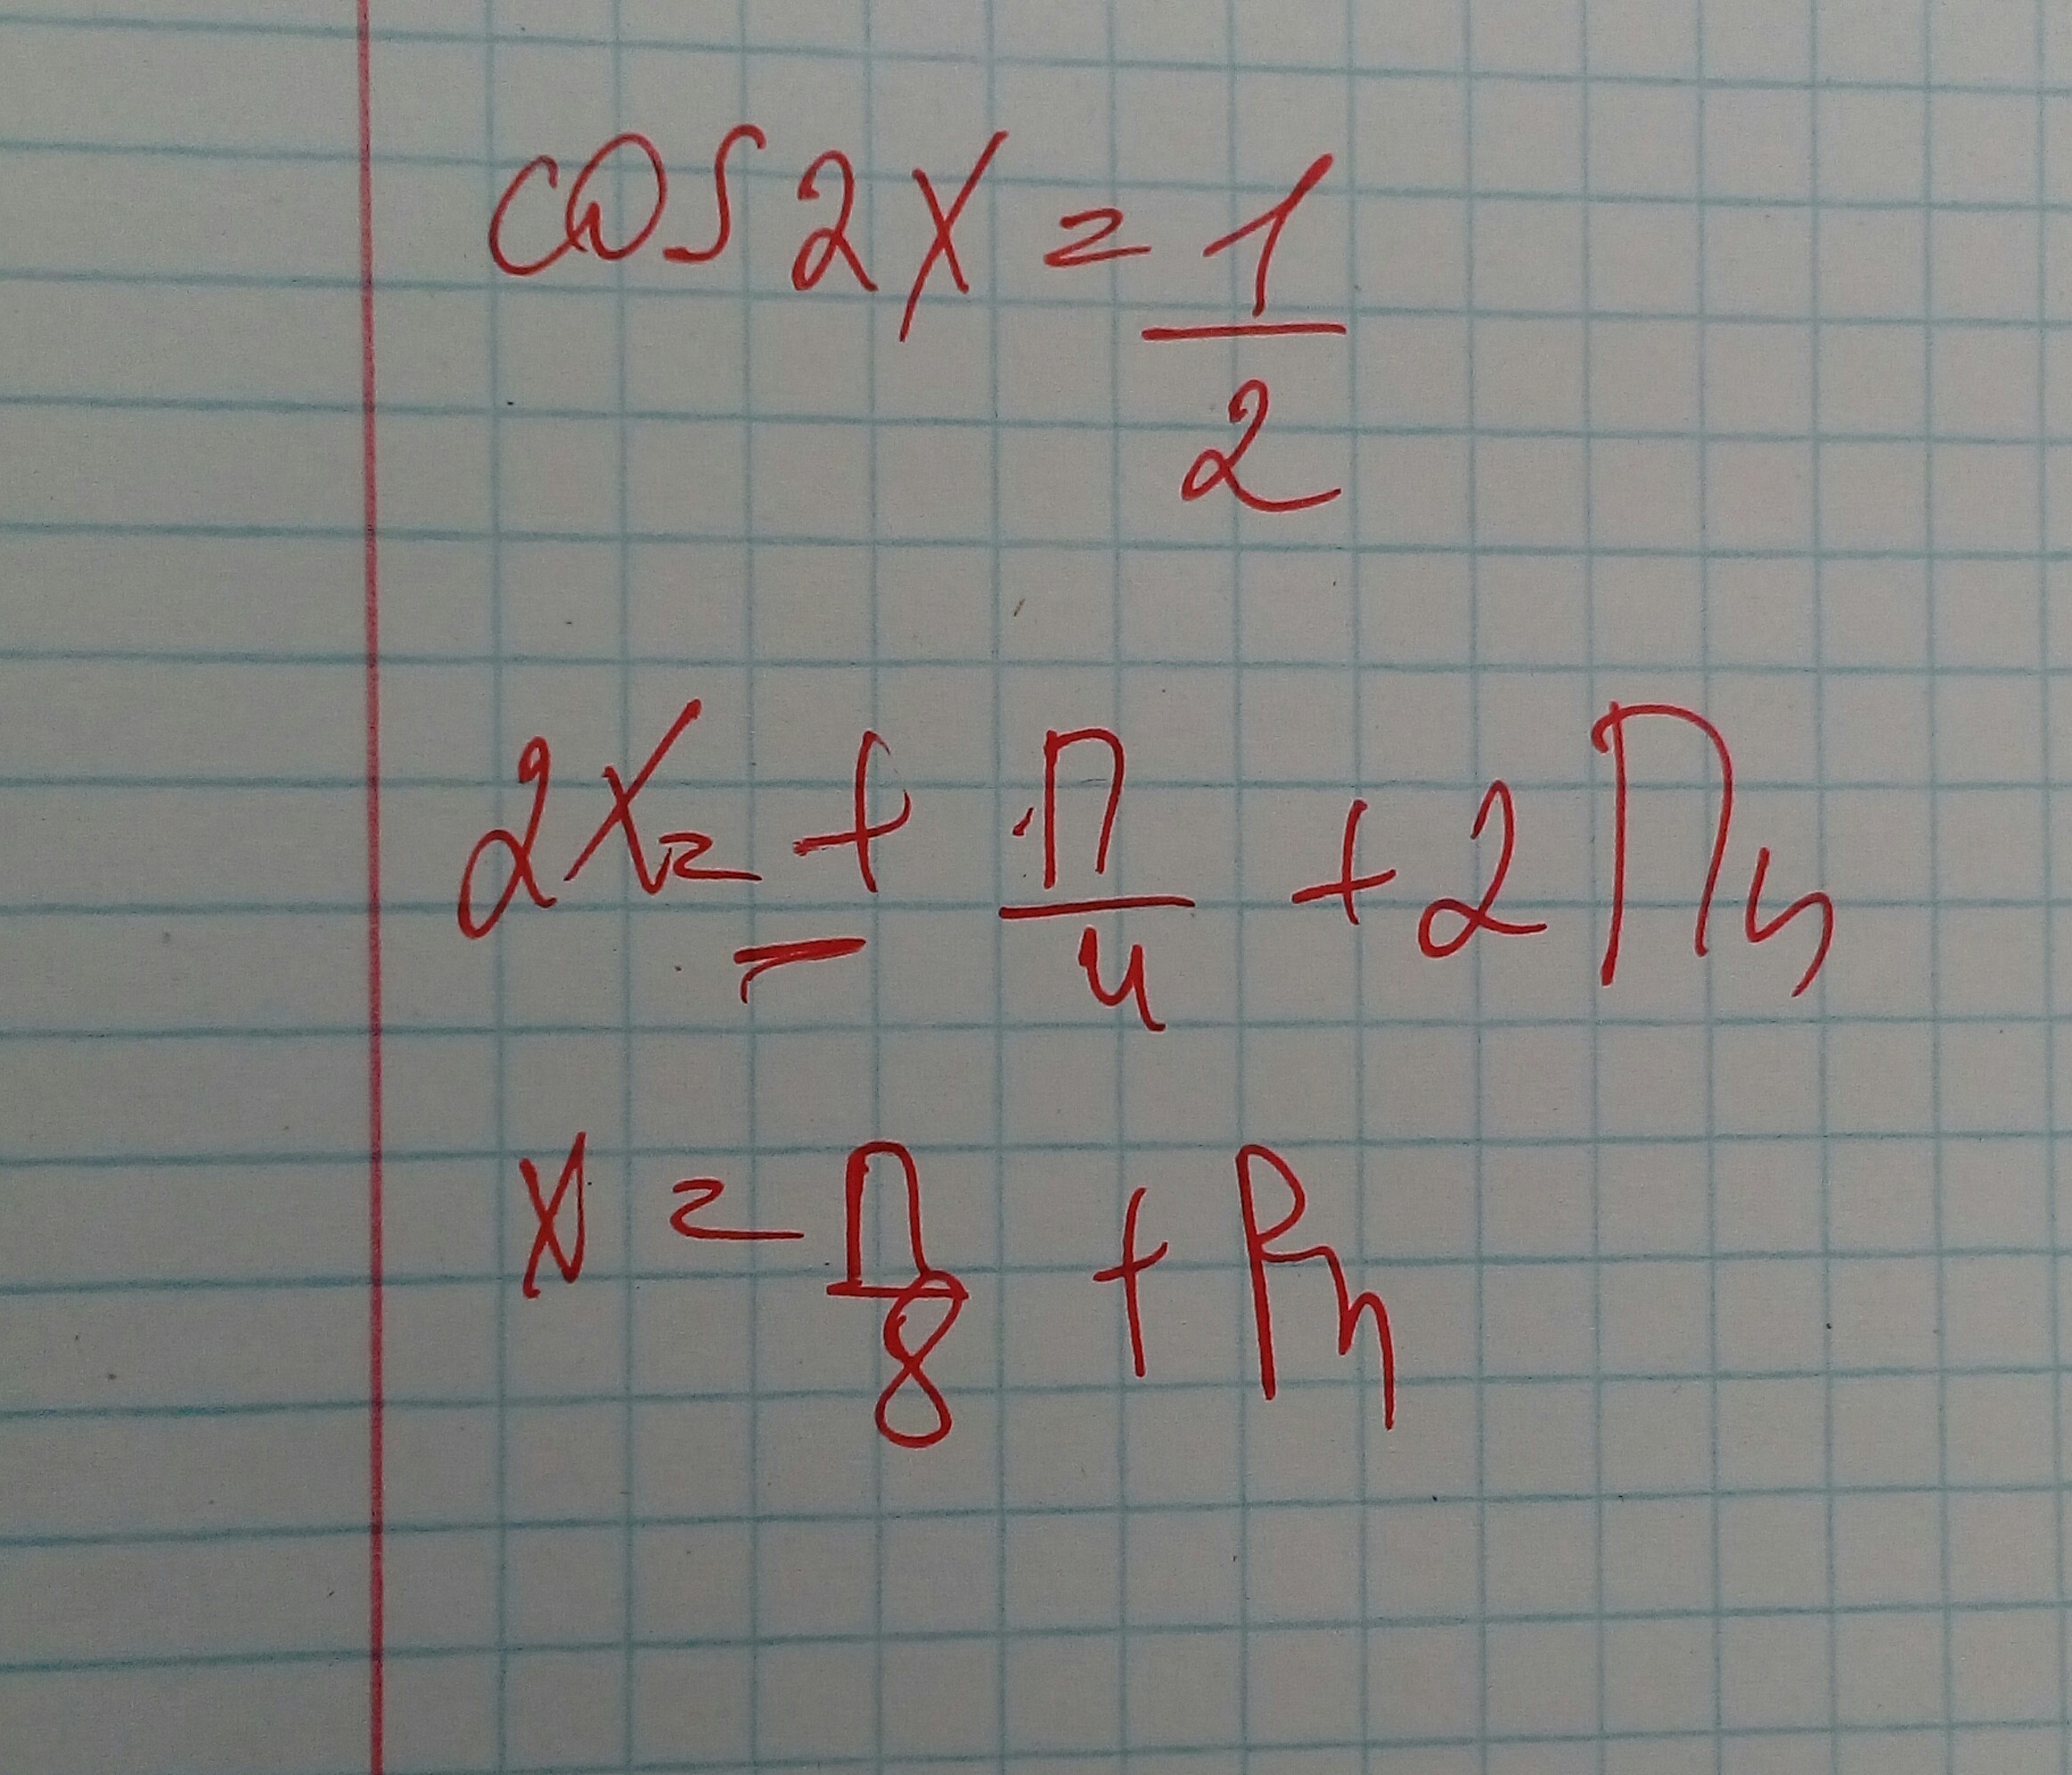 cos 2x = 1/2
2x = ± π/4 + 2πn
x = π/8 + πn